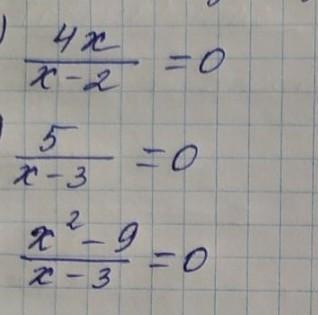 ) 4x / x - 2 = 0
) 5 / x - 3 = 0
x² - 9 / x - 3 = 0